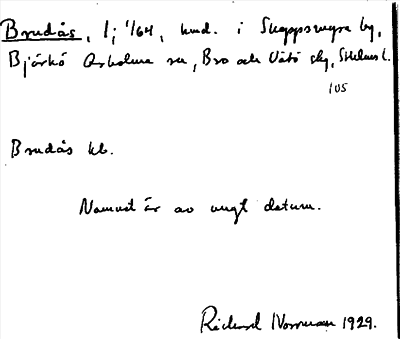 Brudås, l; 1/64, hmd. i Skeppsmyra by,
Björkö Arholma sn, Bro och Vätö skg, Sthlms l.
105
Brudås kb.
Namnet är av ungt datum.
Richard Norrman 1929.